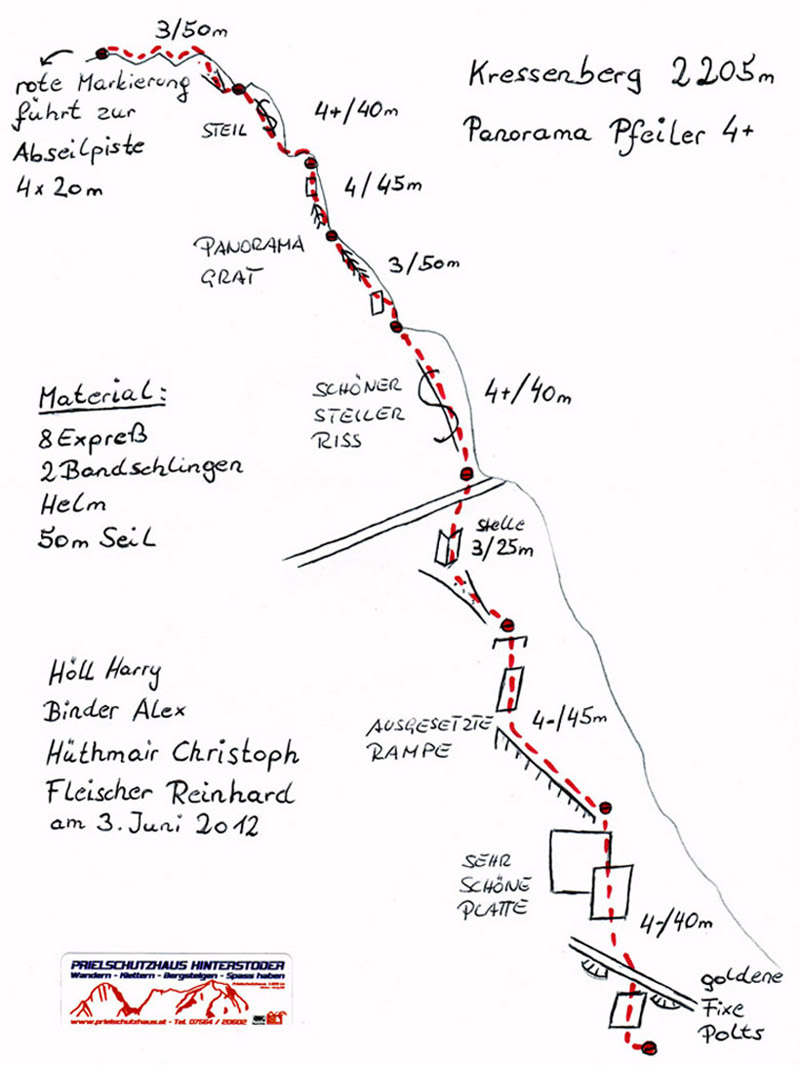 3/50m
Kressenberg 2205m
Panorama Pfeiler 4+
rote Markierung
führt zur
Abseilpiste
4 x 20m
STEIL
4+/40m
4/45m
PANORAMA
GRAT
3/50m
Material:
8 Expreß
2 Bandschlingen
Helm
50m Seil
SCHÖNER
STEILER
RISS
4+/40m
Stelle
3/25m
Höll Harry
Binder Alex
Hüthmair Christoph
Fleischer Reinhard
am 3. Juni 2012
AUSGESETZTE
RAMPE
4-/45m
SEHR
SCHÖNE
PLATTE
4-/40m
goldene
Fixe
Polts
PRIELSCHUTZHAUS HINTERSTODER
Wandern - Klettern - Bergsteigen - Spass haben
www.prielschutzhaus.at - Tel. 07564 / 20602